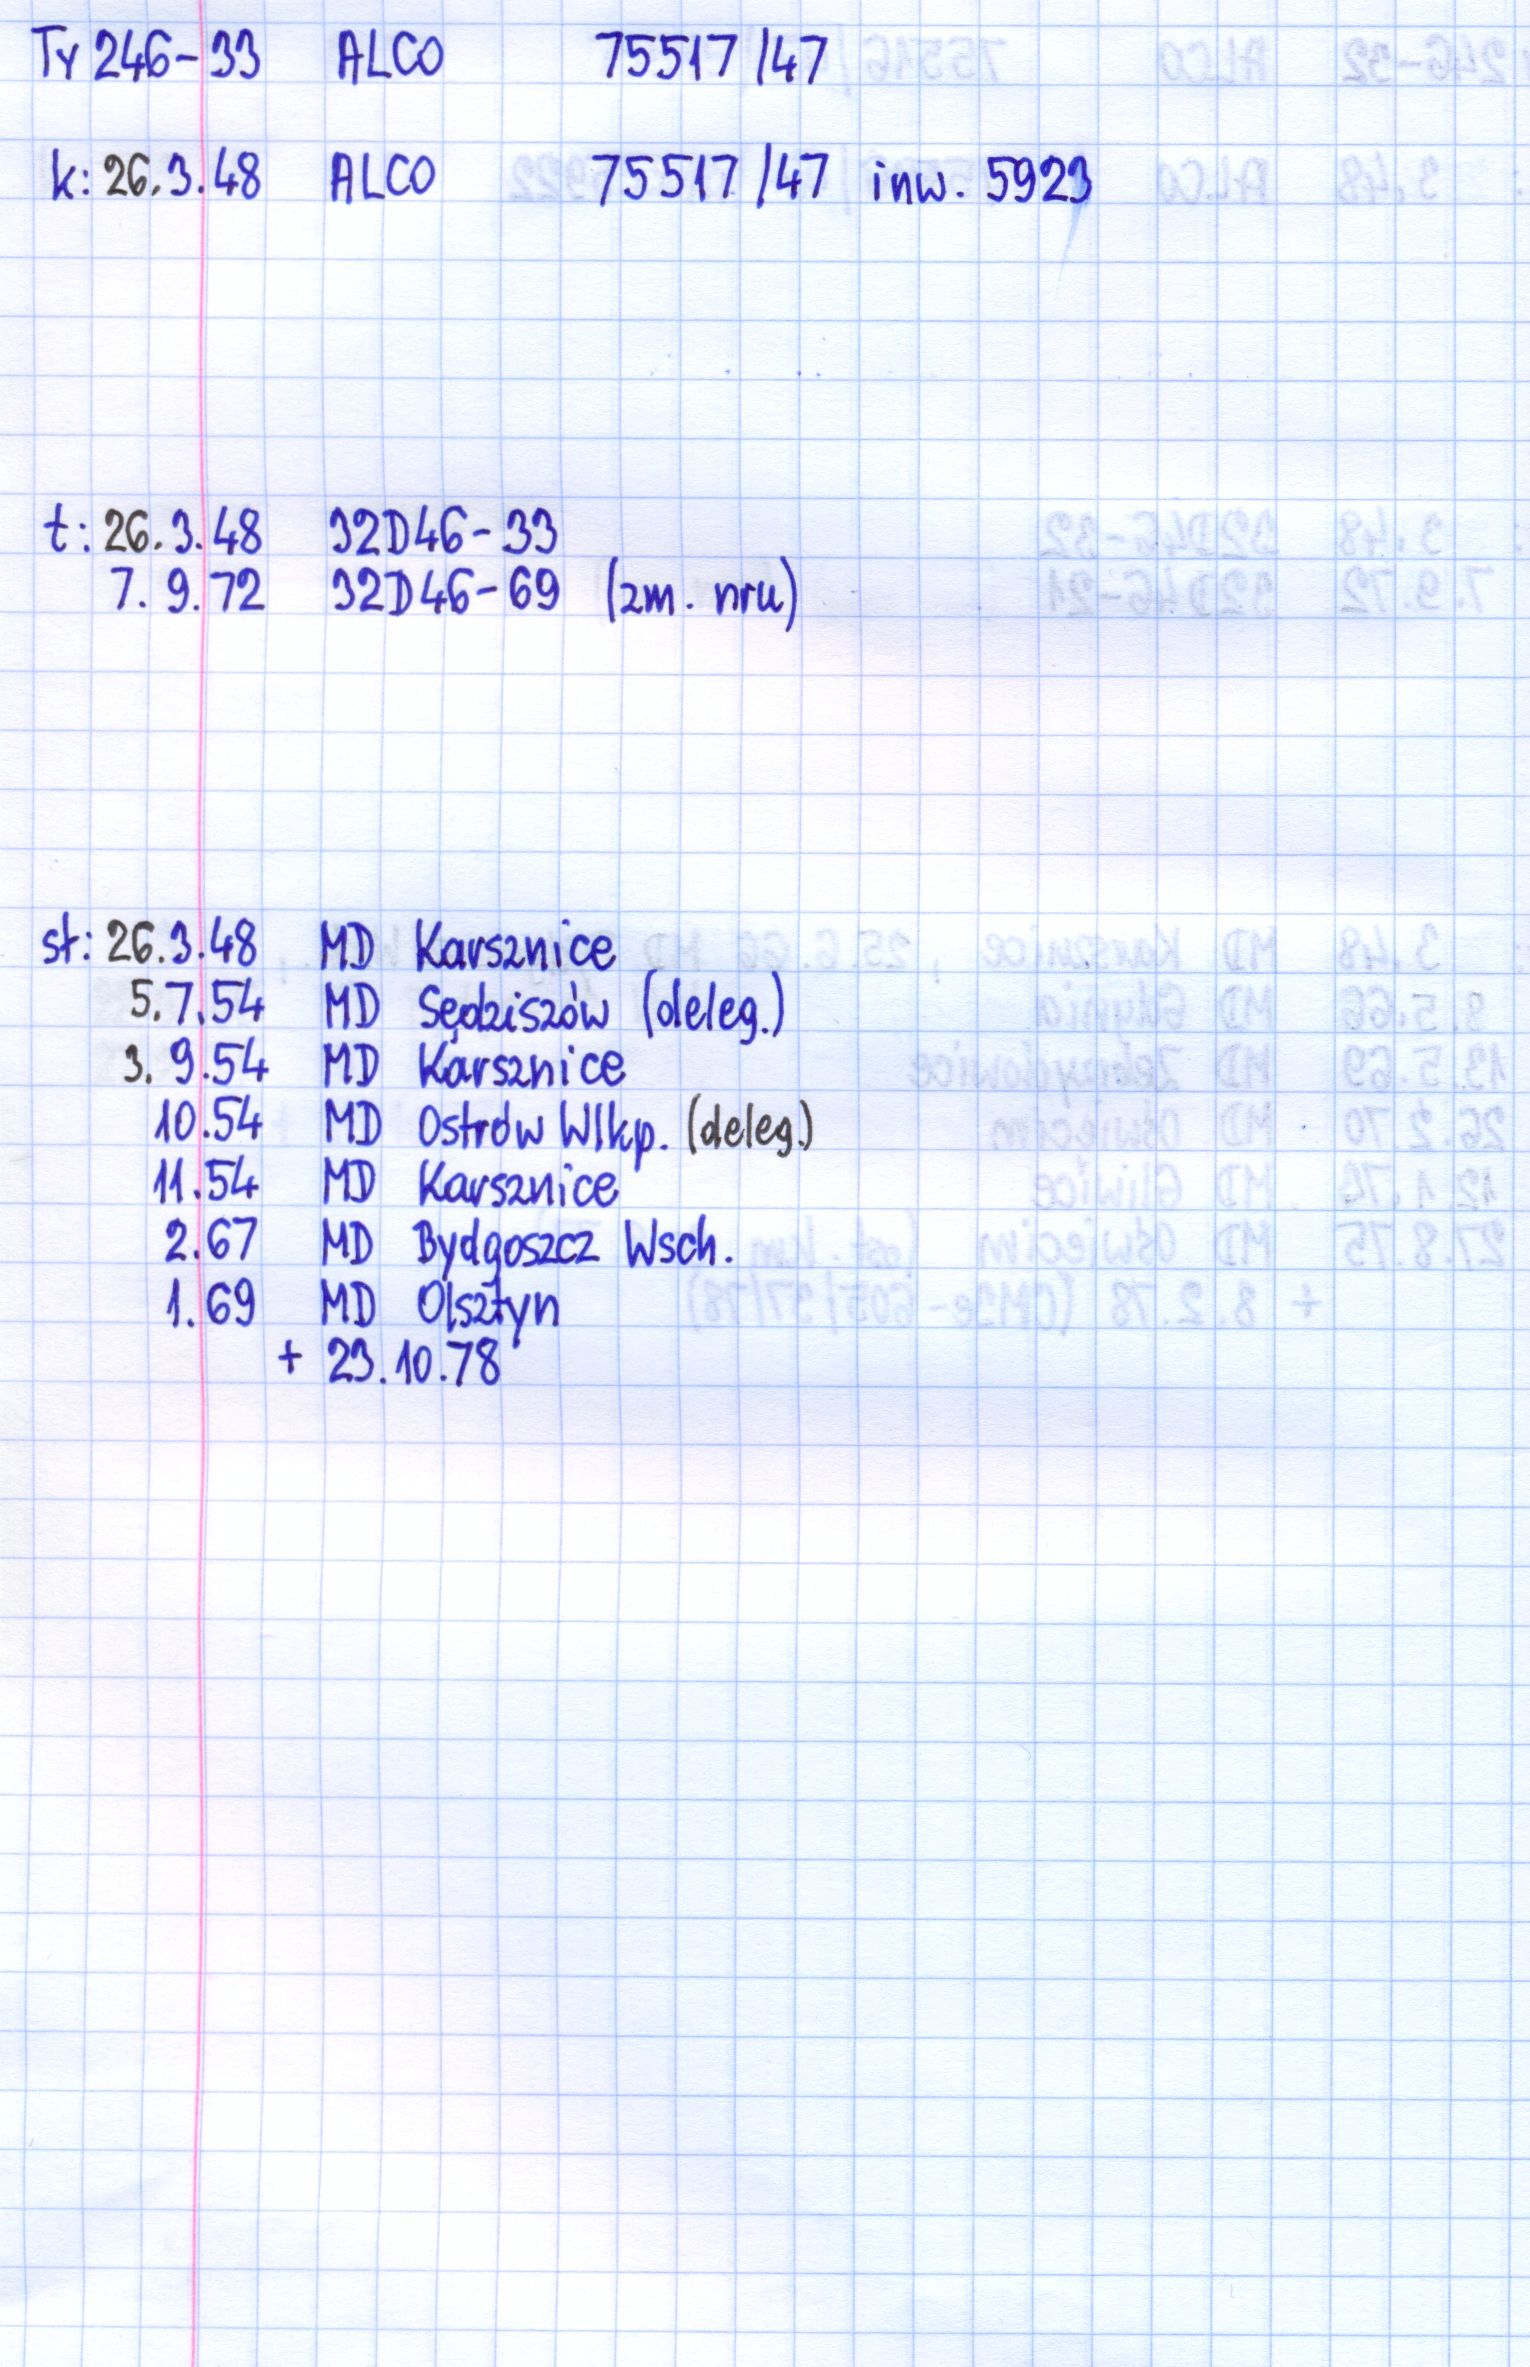 Ty 246-33 ALCO 75517/47
k: 26.3.48 ALCO 75517/47 inw. 5923
t: 26.3.48 32D46-33
7.9.72 32D46-69 (zm. nru)
st: 26.3.48 MD Karsznice
5.7.54 MD Sędziszów (deleg.)
3.9.54 MD Karsznice
10.54 MD Ostrów Wlkp. (deleg.)
11.54 MD Karsznice
2.67 MD Bydgoszcz Wsch.
1.69 MD Olsztyn
+ 23.10.78